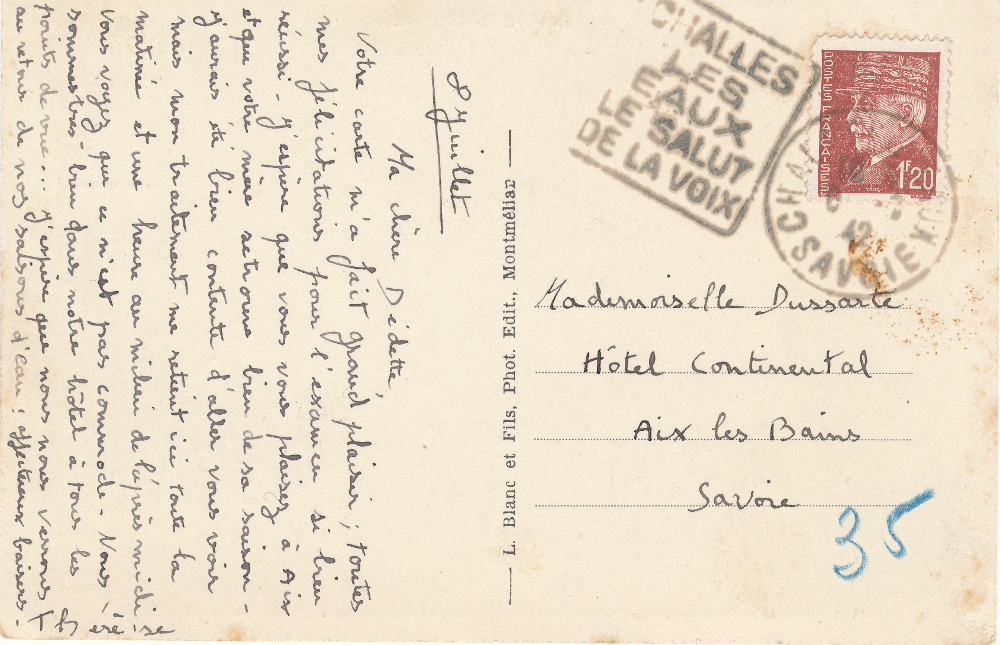 8 juillet
Ma chère Dédette,
Votre carte m'a fait grand plaisir ; toutes
mes félicitations pour l'examen si bien
réussi - j'espère que vous vous plaisez à Aix
et que votre mère se trouve bien de sa saison -
j'aurais été bien contente d'aller vous voir
mais mon traitement me retient ici toute la
matinée et une heure au milieu de l'après midi
Vous voyez que ce n'est pas commode - Nous
sommes très bien dans notre hôtel à tous les
points de vue... j'espère que nous nous verrons
au retour de nos saisons d'eau : affectueux baisers -
Thérèse
L. Blanc et Fils, Phot. Edit., Montmélian
CHALLES
LES
EAUX
LE SALUT
DE LA VOIX
POSTES FRANÇAISES
1F20
42
SAVOIE
Mademoiselle Dussarte
Hôtel Continental
Aix les Bains
Savoie
35